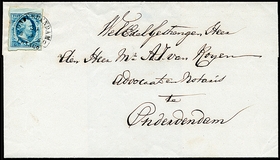 Wel Edel Gestrenger Heer
den Heer Mr. A. J. van Royen
Advocaat en Notaris
te
Onderdendam